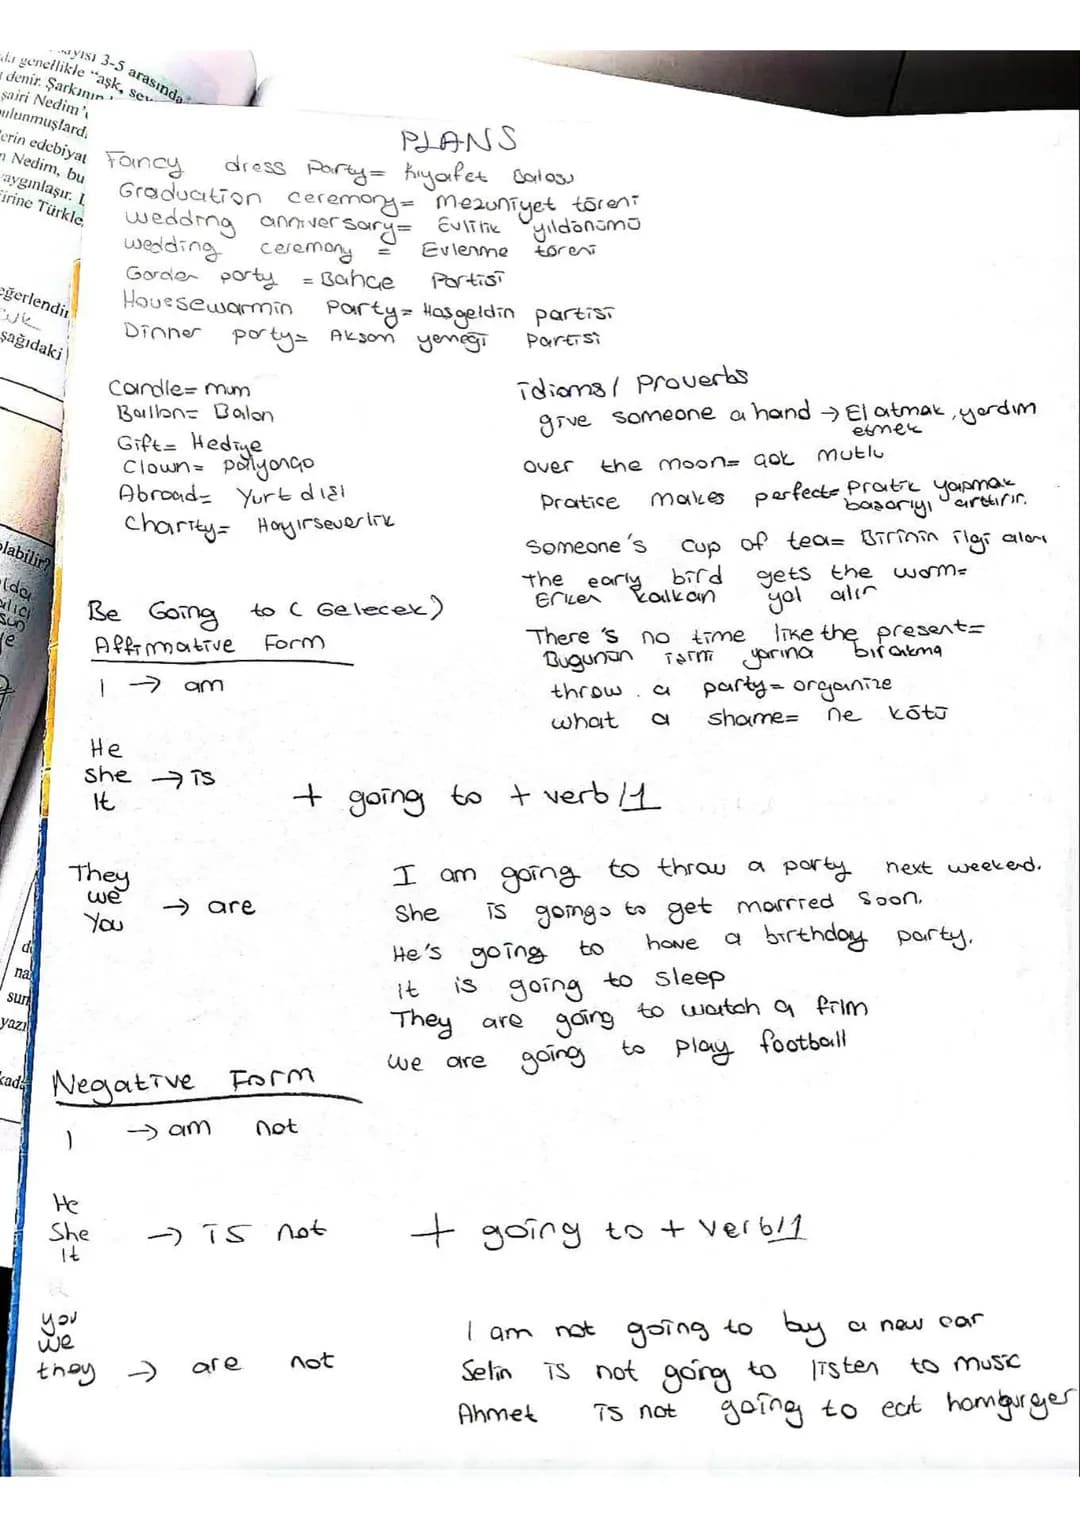 ayısı 3-5 arasında
genellikle "aşk, sev
denir. Şarkının
şairi Nedim'
ulunmuşlard
erin edebiyat
Nedim, bu
aygınlaşır.
irine Türkle
eğerlendir
şağıdaki
olabilir?
sun
yazı
PLANS
Fancy dress Party= Kıyafet Balosu
Graduation ceremony= mezuniyet töreni
wedding anniversary= Evlilik yıldönümü
wedding ceremony = Evlenme töreni
Garden party = Bahçe Partisi
Housewarmin Party= Hoşgeldin partisi
Dinner party= Akşam yemeği Partisi
Candle= mum
Ballon= Balon
Gift= Hediye
Clown= palyanço
Abroad= Yurt dışı
Charity= Hayırseverlik
idioms / Proverbs
give someone a hand → El atmak, yardım
etmek
over the moon= çok mutlu
Pratice makes perfect= Pratik yapmak
başarıyı arttırır.
Someone's cup of tea= Birinin ilgi alanı
the early bird gets the worm=
Erken kalkan yol alır
There's no time like the present=
Bugünün işini yarına bırakma
throw a party= organize
what a shame= ne kötü
Be Going to ( Gelecek)
Affirmative Form
I → am
He
she → is
It
+ going to + verb/1
They
we
You → are
I am going to throw a party next weekend.
She is going to get married soon.
He's going to have a birthday party.
it is going to sleep
They are going to watch a film
we are going to play football
Negative Form
I → am not
He
She → is not
It
+ going to + verb/1
you
we
they → are not
I am not going to by a new car
Selin is not going to listen to music
Ahmet is not going to eat hamburger